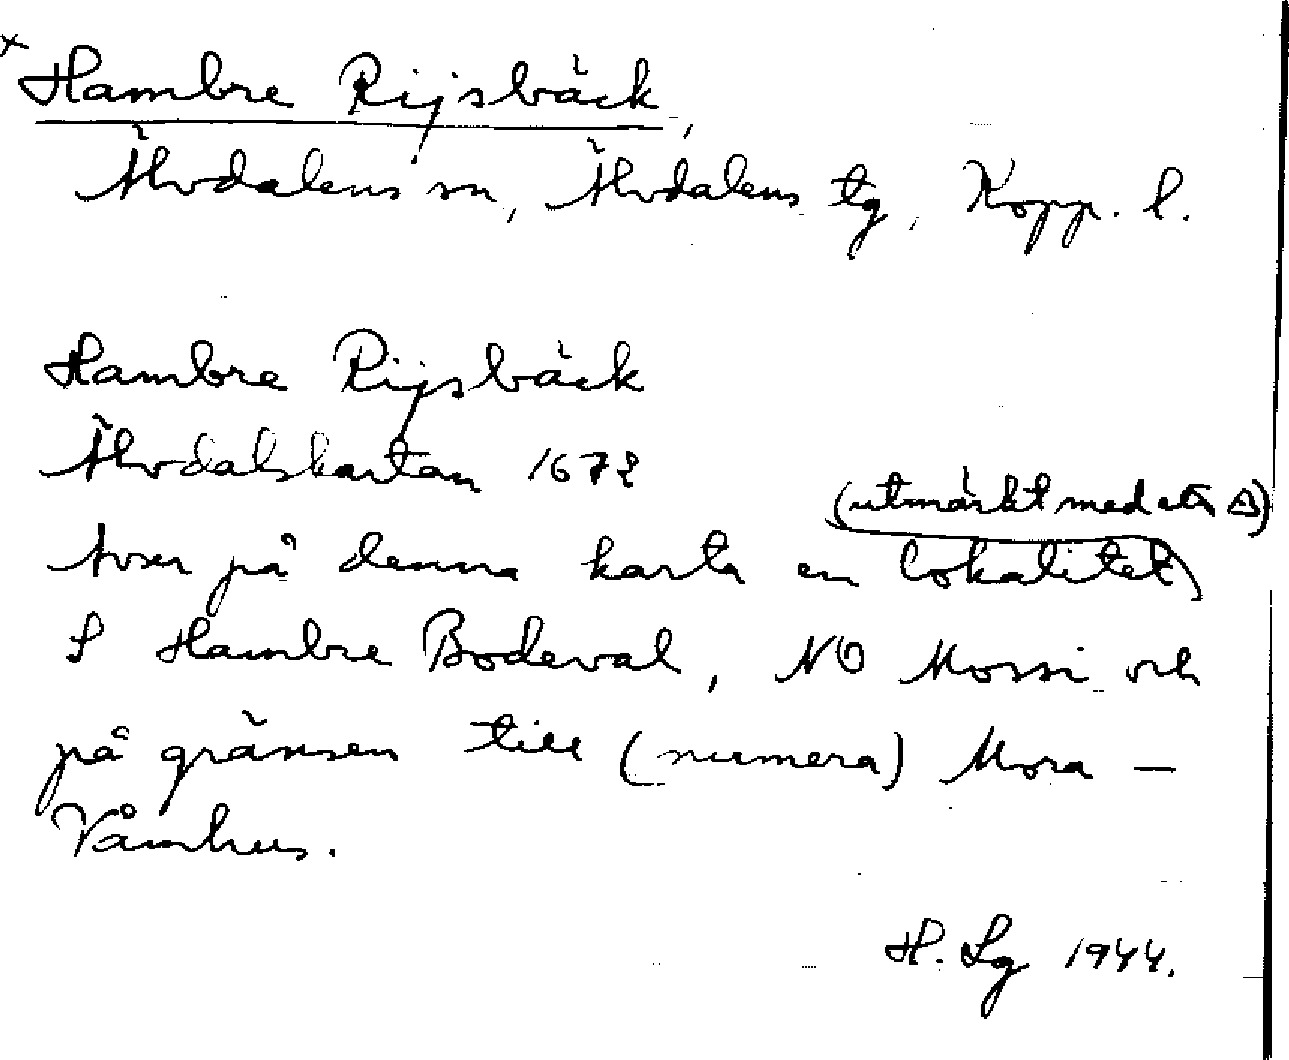 x Hambre Rijsbäck,
Älvdalens sn, Älvdalens tg, Kopp. l.
Hambre Rijsbäck
Älvdalskartan 1672
(utmärkt med ett △)
Avser på denna karta en lokalitet
S Hambre Bodeval, NO Mossi och
på gränsen till (numera) Mora –
Våmhus.
H. Lg 1944.